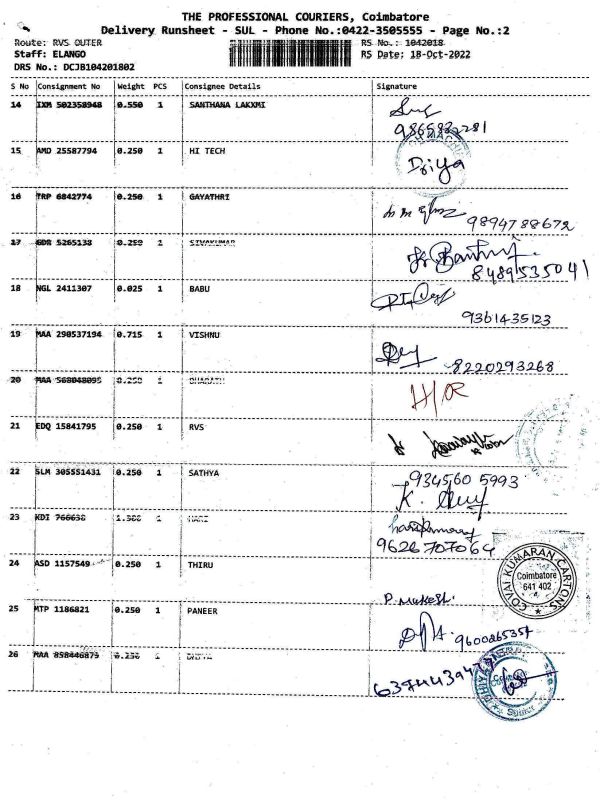 THE PROFESSIONAL COURIERS, Coimbatore
Delivery Runsheet - SUL - Phone No.:0422-3505555 - Page No.:2
Route: RVS OUTER RS No.: 1042018
Staff: ELANGO RS Date: 18-Oct-2022
DRS No.: DCJB104201802
S No Consignment No Weight PCS Consignee Details Signature
14 IXM 502358948 0.550 1 SANTHANA LAKXMI
9865832281
15 AMD 25587794 0.250 1 HI TECH
Driya
16 TRP 6842774 0.250 1 GAYATHRI
9894788672
17 GDR 5265138 0.250 1 SIVAKUMAR
8489535041
18 NGL 2411307 0.025 1 BABU
9361435123
19 MAA 290537194 0.715 1 VISHNU
8220293268
20 MAA 568048095 0.250 1 BHARATH
21 EDQ 15841795 0.250 1 RVS
22 SLM 305551431 0.250 1 SATHYA
934560 5993
23 KDI 766638 1.500 1 HARI
9626707064
24 ASD 1157549 0.250 1 THIRU
COVAI KUMARAN CARTONS
Coimbatore
641 402
25 MTP 1186821 0.250 1 PANEER
P. Mukesh.
9600265357
26 MAA 858446873 0.250 1 DIVYA